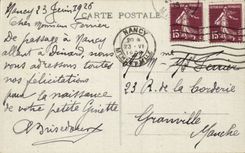 Nancy 23 Juin 1926
CARTE POSTALE
Cher Monsieur
De passage à Nancy
allant à Dinard, nous
vous adressons toutes
nos félicitations
pour la naissance
de votre petite Ginette
NANCY
23 - VI
15
15
23 R. de la Corderie
Granville
Manche